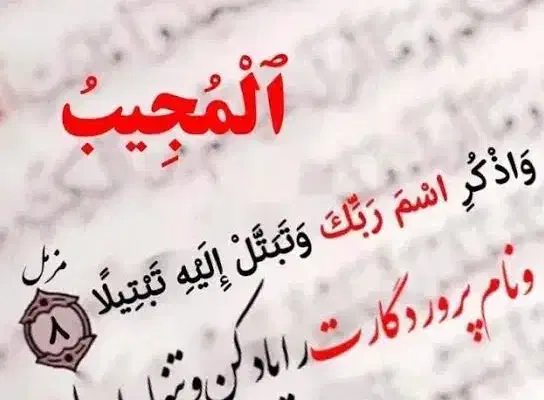 ٱلْمُجِيبُ
وَاذْكُرِ اسْمَ رَبِّكَ وَتَبَتَّلْ إِلَيْهِ تَبْتِيلًا ٨ مزمل
ونام پروردگارت را یاد کن و تنها